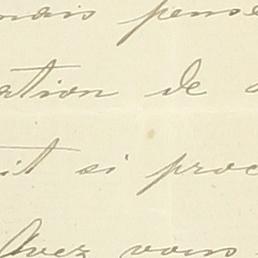 mais pense
ation de
it si proc
Avez vous